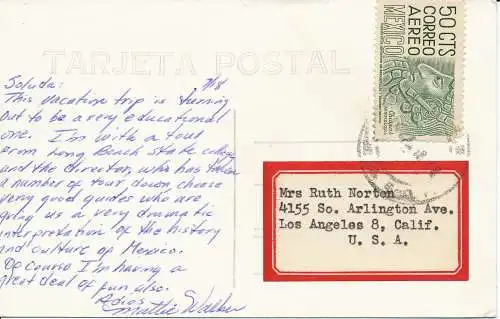 TARJETA POSTAL
50 CTS
CORREO
AEREO
MEXICO
7/8
This vacation trip is turning
out to be a very educational
one. I'm with a tour
from Long Beach State college
and the director, who has taken
a number of tour down, choose
very good guides who are
giving us a very dramatic
interpretation of the history
and culture of Mexico.
Of course I'm having a
great deal of fun also.
Adios
Mattie Walker
Mrs Ruth Norton
4155 So. Arlington Ave.
Los Angeles 8, Calif.
U. S. A.